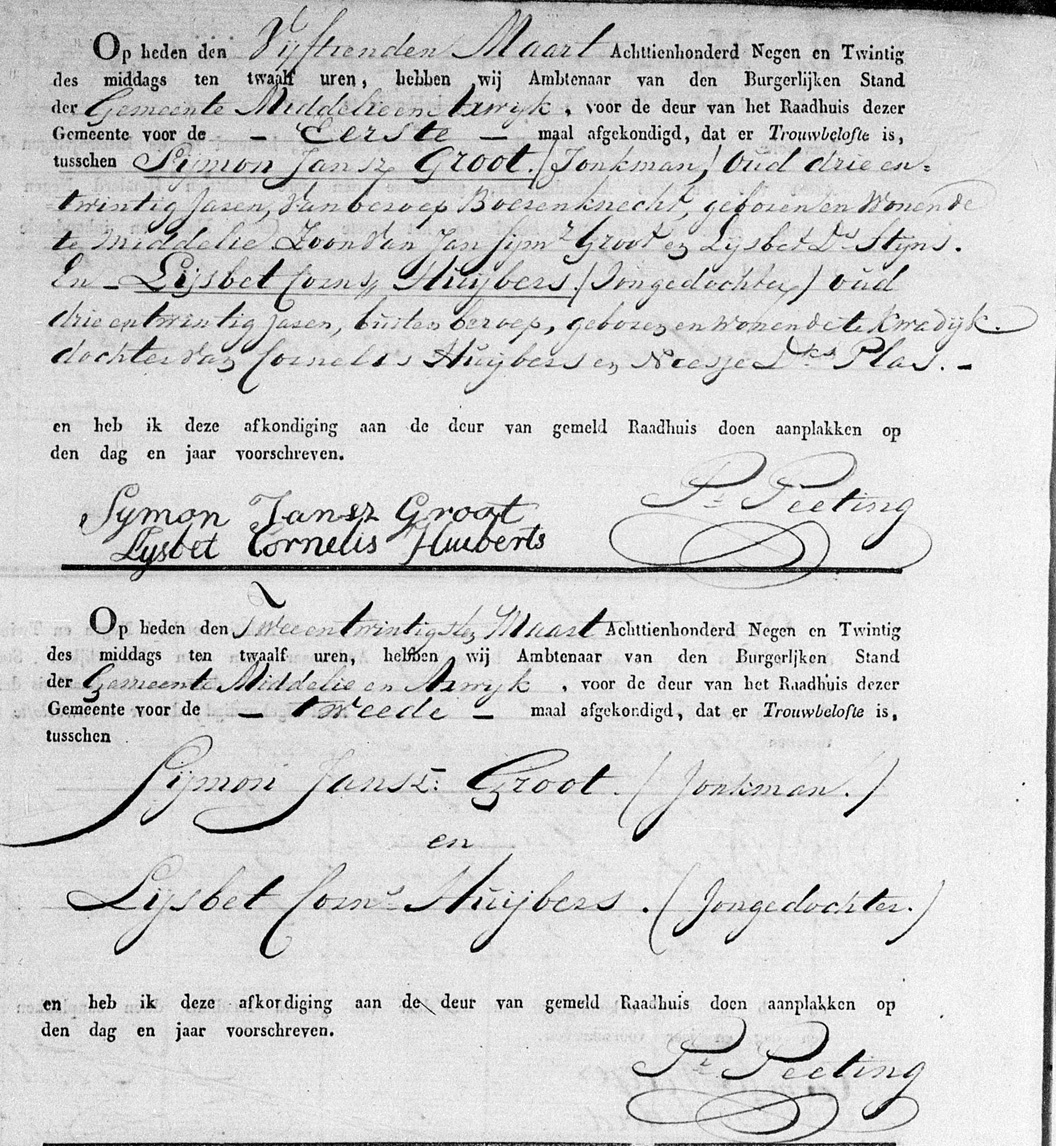 Op heden den Vijftienden Maart Achttienhonderd Negen en Twintig
des middags ten twaalf uren, hebben wij Ambtenaar van den Burgerlijken Stand
der Gemeente Middelie en Axwyk, voor de deur van het Raadhuis dezer
Gemeente voor de - Eerste - maal afgekondigd, dat er Trouwbelofte is,
tusschen Symon Jansz Groot. (Jonkman) Oud drie en=
twintig Jaren, Van beroep Boerenknecht, geboren en Wonende
te Middelie Zoon van Jan Symz Groot en Lysbet Ds Styns.
En - Lijsbet Corns Huijbers (Jongedochter) oud
drie en twintig Jaren, buiten beroep, geboren en wonende te Kwadyk.
dochter van Cornelis Huijbers en Neesje Dks Plas. -
en heb ik deze afkondiging aan de deur van gemeld Raadhuis doen aanplakken op
den dag en jaar voorschreven.
Symon Jansz Groot
Pr Peeting
Lysbet Cornelis Huiberts
Op heden den Twee en twintigsten Maart Achttienhonderd Negen en Twintig
des middags ten twaalf uren, hebben wij Ambtenaar van den Burgerlijken Stand
der Gemeente Middelie en Axwyk, voor de deur van het Raadhuis dezer
Gemeente voor de - tweede - maal afgekondigd, dat er Trouwbelofte is,
tusschen
Symon Jansz: Groot. (Jonkman.)
en
Lijsbet Corns Huijbers. (Jongedochter.)
en heb ik deze afkordiging aan de deur van gemeld Raadhuis doen aanplakken op
den dag en jaar voorschreven.
Pr Peeting